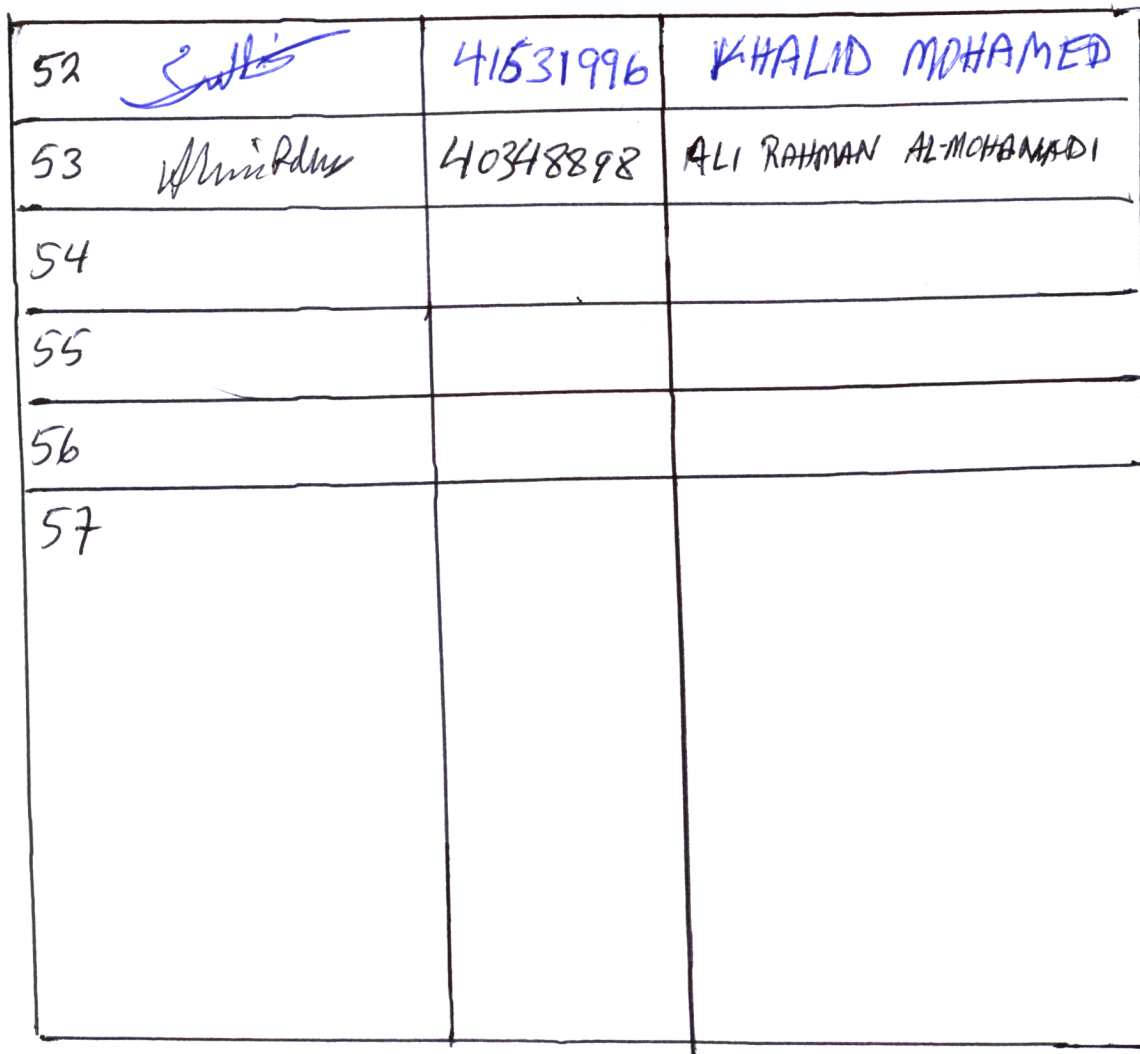 52 41531996 KHALID MOHAMED
53 40348898 ALI RAHMAN AL-MOHAMADI
54
55
56
57